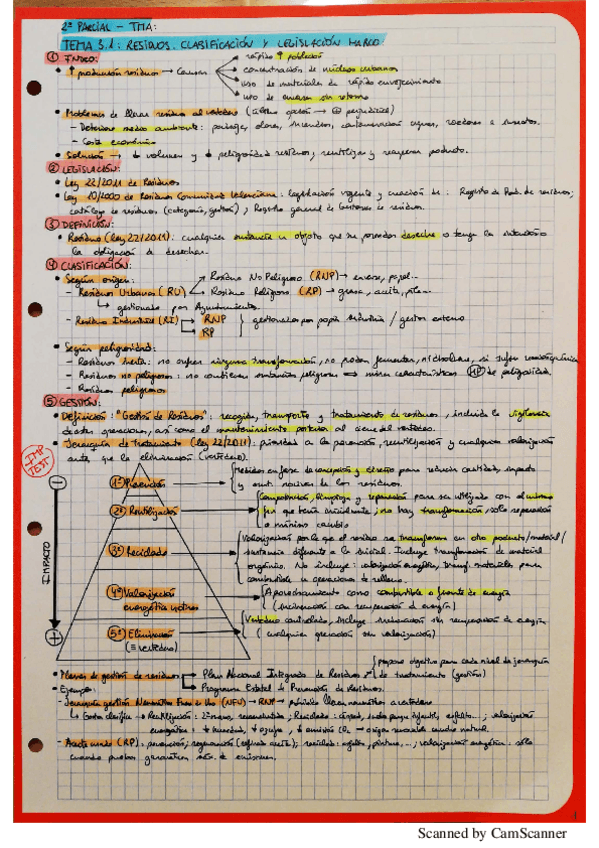 2º PARCIAL - TMA:
TEMA 3.1: RESIDUOS. CLASIFICACIÓN Y LEGISLACIÓN MARCO
① INTRO:
• ↑ producción residuos → Causas
→ rápido ↑ población
→ concentración de núcleos urbanos
→ uso de materiales de rápido envejecimiento
→ uso de envases sin retorno
• Problemas de llevar residuos al vertedero (última opción → ⊕ perjudicial)
- Deterioro medio ambiente: paisaje, olores, incendios, contaminación aguas, roedores e insectos.
- Coste económico
• Solución → ↓ volumen y ↓ peligrosidad residuos, reutilizar y recuperar producto.
② LEGISLACIÓN:
• Ley 22/2011 de Residuos
• Ley 10/2000 de Residuos Comunidad Valenciana: legislación vigente y creación de: Registro de Prod. de residuos;
catálogo de residuos (categoría, gestión); Registro general de Gestores de residuos.
③ DEFINICIÓN:
• Residuo (Ley 22/2011): cualquier sustancia u objeto que su poseedor deseche o tenga la intención o
la obligación de desechar.
④ CLASIFICACIÓN:
• Según origen:
- Residuos Urbanos (RU)
→ Residuo No Peligroso (RNP) → envase, papel...
→ Residuo Peligroso (RP) → grasa, aceite, pilas...
↳ gestionado por Ayuntamientos.
- Residuos Industrial (RI)
→ RNP
→ RP
} gestionados por propia industria / gestor externo
• Según peligrosidad:
- Residuos inerte: no sufren ninguna transformación, no pueden fermentar, ni disolver, ni sufrir reacción química
- Residuos no peligrosos: no contienen sustancias peligrosas características HP de peligrosidad.
- Residuos peligrosos
⑤ GESTIÓN:
• Definición: "Gestión de Residuos": recogida, transporte y tratamiento de residuos, incluida la vigilancia
de estas operaciones, así como el mantenimiento posterior al cierre del vertedero.
• Jerarquía de tratamiento (Ley 22/2011): prioridad a la prevención, reutilización y cualquier valorización
antes que la eliminación (vertedero).
IMP TEST
⊖
IMPACTO
⊕
1º Prevención
Medidas en fase de concepción y diseño para reducir cantidad, impacto
y sust. nocivas de los residuos.
2º Reutilización
Comprobación, limpieza y reparación para ser utilizado con el mismo
fin que tenía inicialmente, no hay transformación, solo reparación
o mínimo cambio
3º Reciclado
Valorización por la que el residuo se transforma en otro producto/material/
sustancia diferente a la inicial. Incluye transformación de material
orgánico. No incluye: valorización energética, transf. materiales para
combustible u operaciones de relleno.
4º Valorización
energética y otras
Aprovechamiento como combustible o fuente de energía
(incineración con recuperación de energía)
5º Eliminación
(≡ vertedero)
Vertedero controlado, incluye incineración sin recuperación de energía
(cualquier operación sin valorización)
• Planes de gestión de residuos
→ Plan Nacional Integrado de Residuos
→ Programa Estatal de Prevención de Residuos.
propone objetivo para cada nivel de jerarquía
de tratamiento (gestión)
• Ejemplos:
- Jerarquía gestión Neumáticos Fuera de Uso (NFU) → RNP → prohibido llevar neumáticos a vertedero
↳ Gestor clasifica → Reutilización: ; Reciclado: césped, suelo parque infantil, asfalto...; valorización
energética: ↓ humedad, ↓ azufre, ↓ emisión CO₂ → origen caucho natural.
- Aceite usado (RP): prevención; regeneración (refinado aceite); reciclado: asfalto, pintura,...; valorización energética: solo
cuando puedas garantizar de emisiones.
Scanned by CamScanner